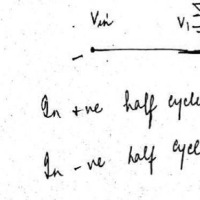 Vin V1
In +ve half cycle
In -ve half cycle